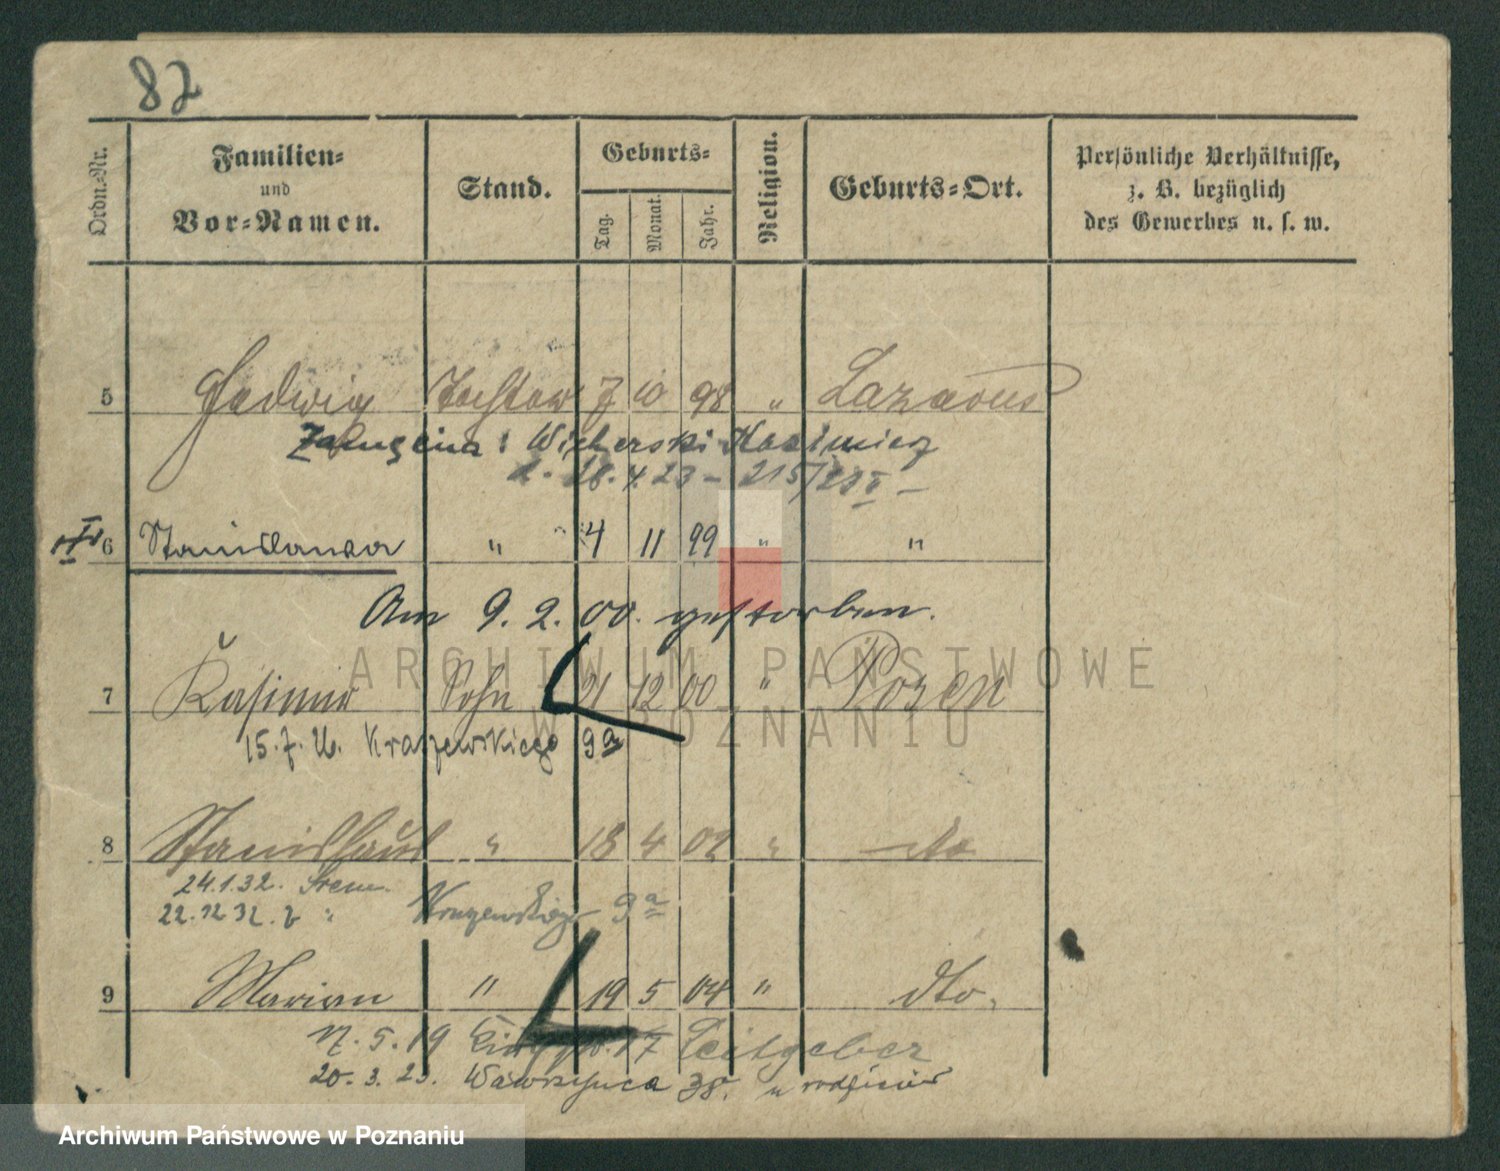 82
Ordn.-Nr.
Familien-
und
Vor-Namen.
Stand.
Geburts-
Tag.
Monat.
Jahr.
Religion.
Geburts-Ort.
Persönliche Verhältnisse,
z. B. bezüglich
des Gewerbes u. s. w.
5 Hedwig Tochter 7 10 98 " Lazarus
Zamężna: Wicherski Kazimierz
d. 28.4.23 – 215/23
6 Stanislawa " 4 11 99 " "
Am 9. 2. 00. gestorben.
7 Kasimir Sohn 21 12 00 " Posen
15.7.26. Kraszewskiego 9a
8 Stanislaus " 18 4 02 " dto
24.1.32. Śrem.
22.12.32. z " Kraszewskiego 9a
9 Marian " 19 5 04 " dto.
17 Leitgeber
20.3.23. Wawrzyńca 38. u rodziców
ARCHIWUM PAŃSTWOWE
W POZNANIU
Archiwum Państwowe w Poznaniu